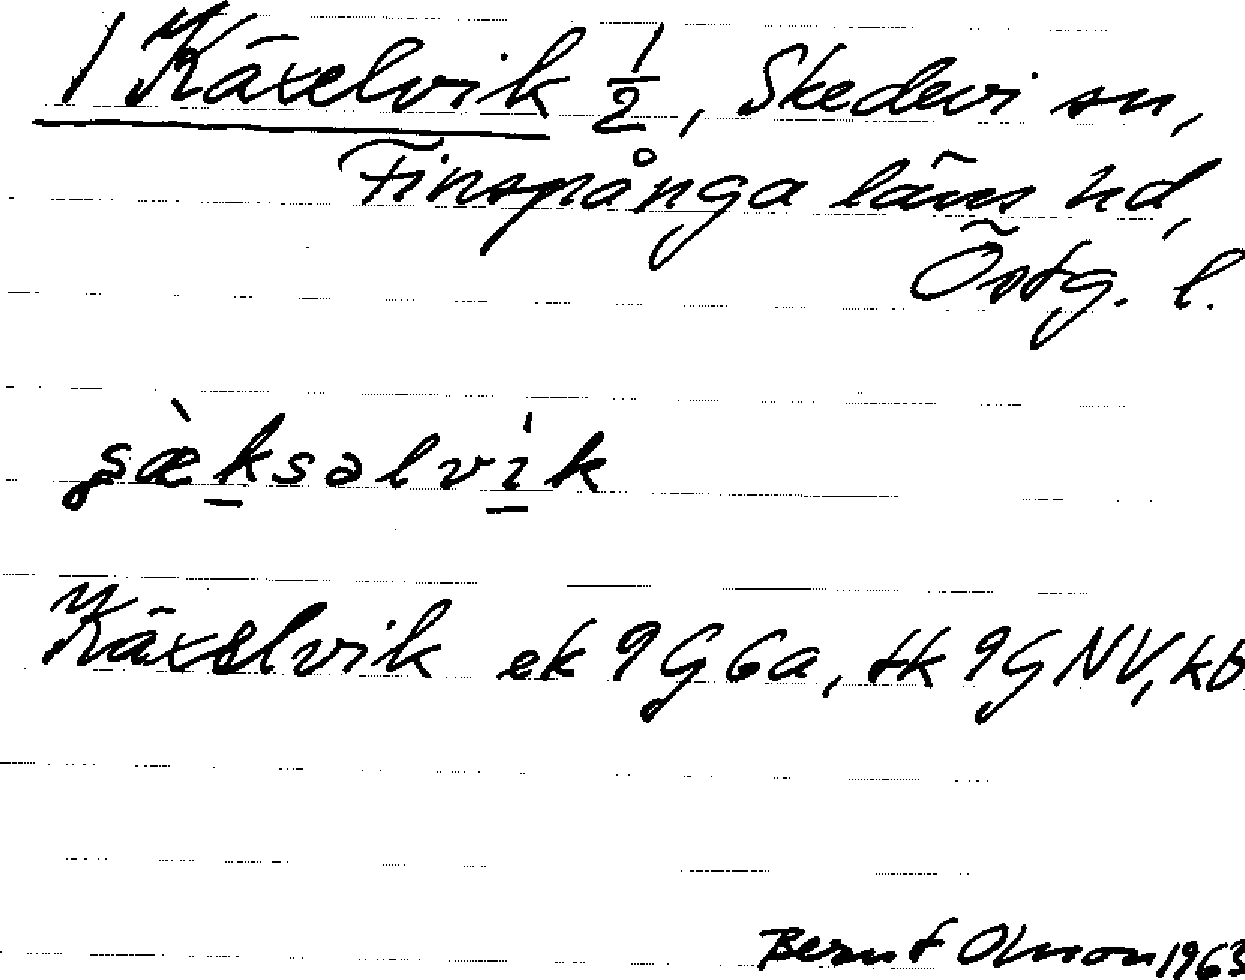 1 Käxelvik 1/2, Skedevi sn,
Finspånga läns hd,
Östg. l.
s̨æ̀ksəlvik
Käxelvik ek 9G6a, tk 9GNV, kb
Bernt Olsson 1963